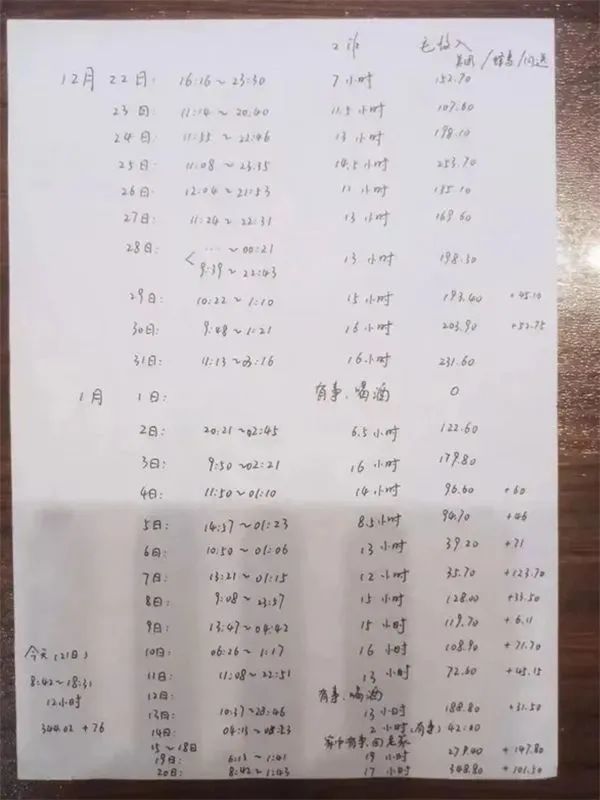 工作 毛收入
美团/蜂鸟/闪送
12月 22日: 16:16~23:30 7小时 152.70
23日: 11:14~20.40 11.5小时 107.60
24日: 11:55~22:46 13小时 198.10
25日: 11:08~23.35 14.5小时 253.70
26日: 12:04~21:53 11小时 135.10
27日: 11:24~22:31 13小时 169.60
28日: < ...~00:21
9:39~22:43 13小时 198.30
29日: 10:22~1:10 15小时 193.40 +45.10
30日: 9:48~1:21 16小时 203.90 +52.75
31日: 11:13~03:16 16小时 231.60
1月 1日: 有事、喝酒 0
2日: 20:21~02:45 6.5小时 122.60
3日: 9:50~02:21 16小时 179.80
4日: 11:50~01:10 14小时 96.60 +60
5日: 14:37~01:23 8.5小时 94.70 +46
6日: 10:50~01:06 13小时 39.20 +71
7日: 13:21~01:15 12小时 35.70 +123.70
8日: 9:08~23:57 15小时 128.00 +33.50
9日: 13:47~04:42 15小时 119.70 +6.11
10日: 06:26~1:17 16小时 108.90 +71.70
11日: 11:08~22:51 13小时 72.60 +45.15
12日: 有事、喝酒
13日: 10:37~23:46 13小时 188.80 +31.50
14日: 04:13~08:23 2小时(有事) 42.00
15~18日 家中有事、回老家
19日: 6:13~1:41 19小时 279.40 +147.80
20日: 8:42~1:43 17小时 348.80 +101.50
今天(21日)
8:42~18:31
12小时
344.02+76